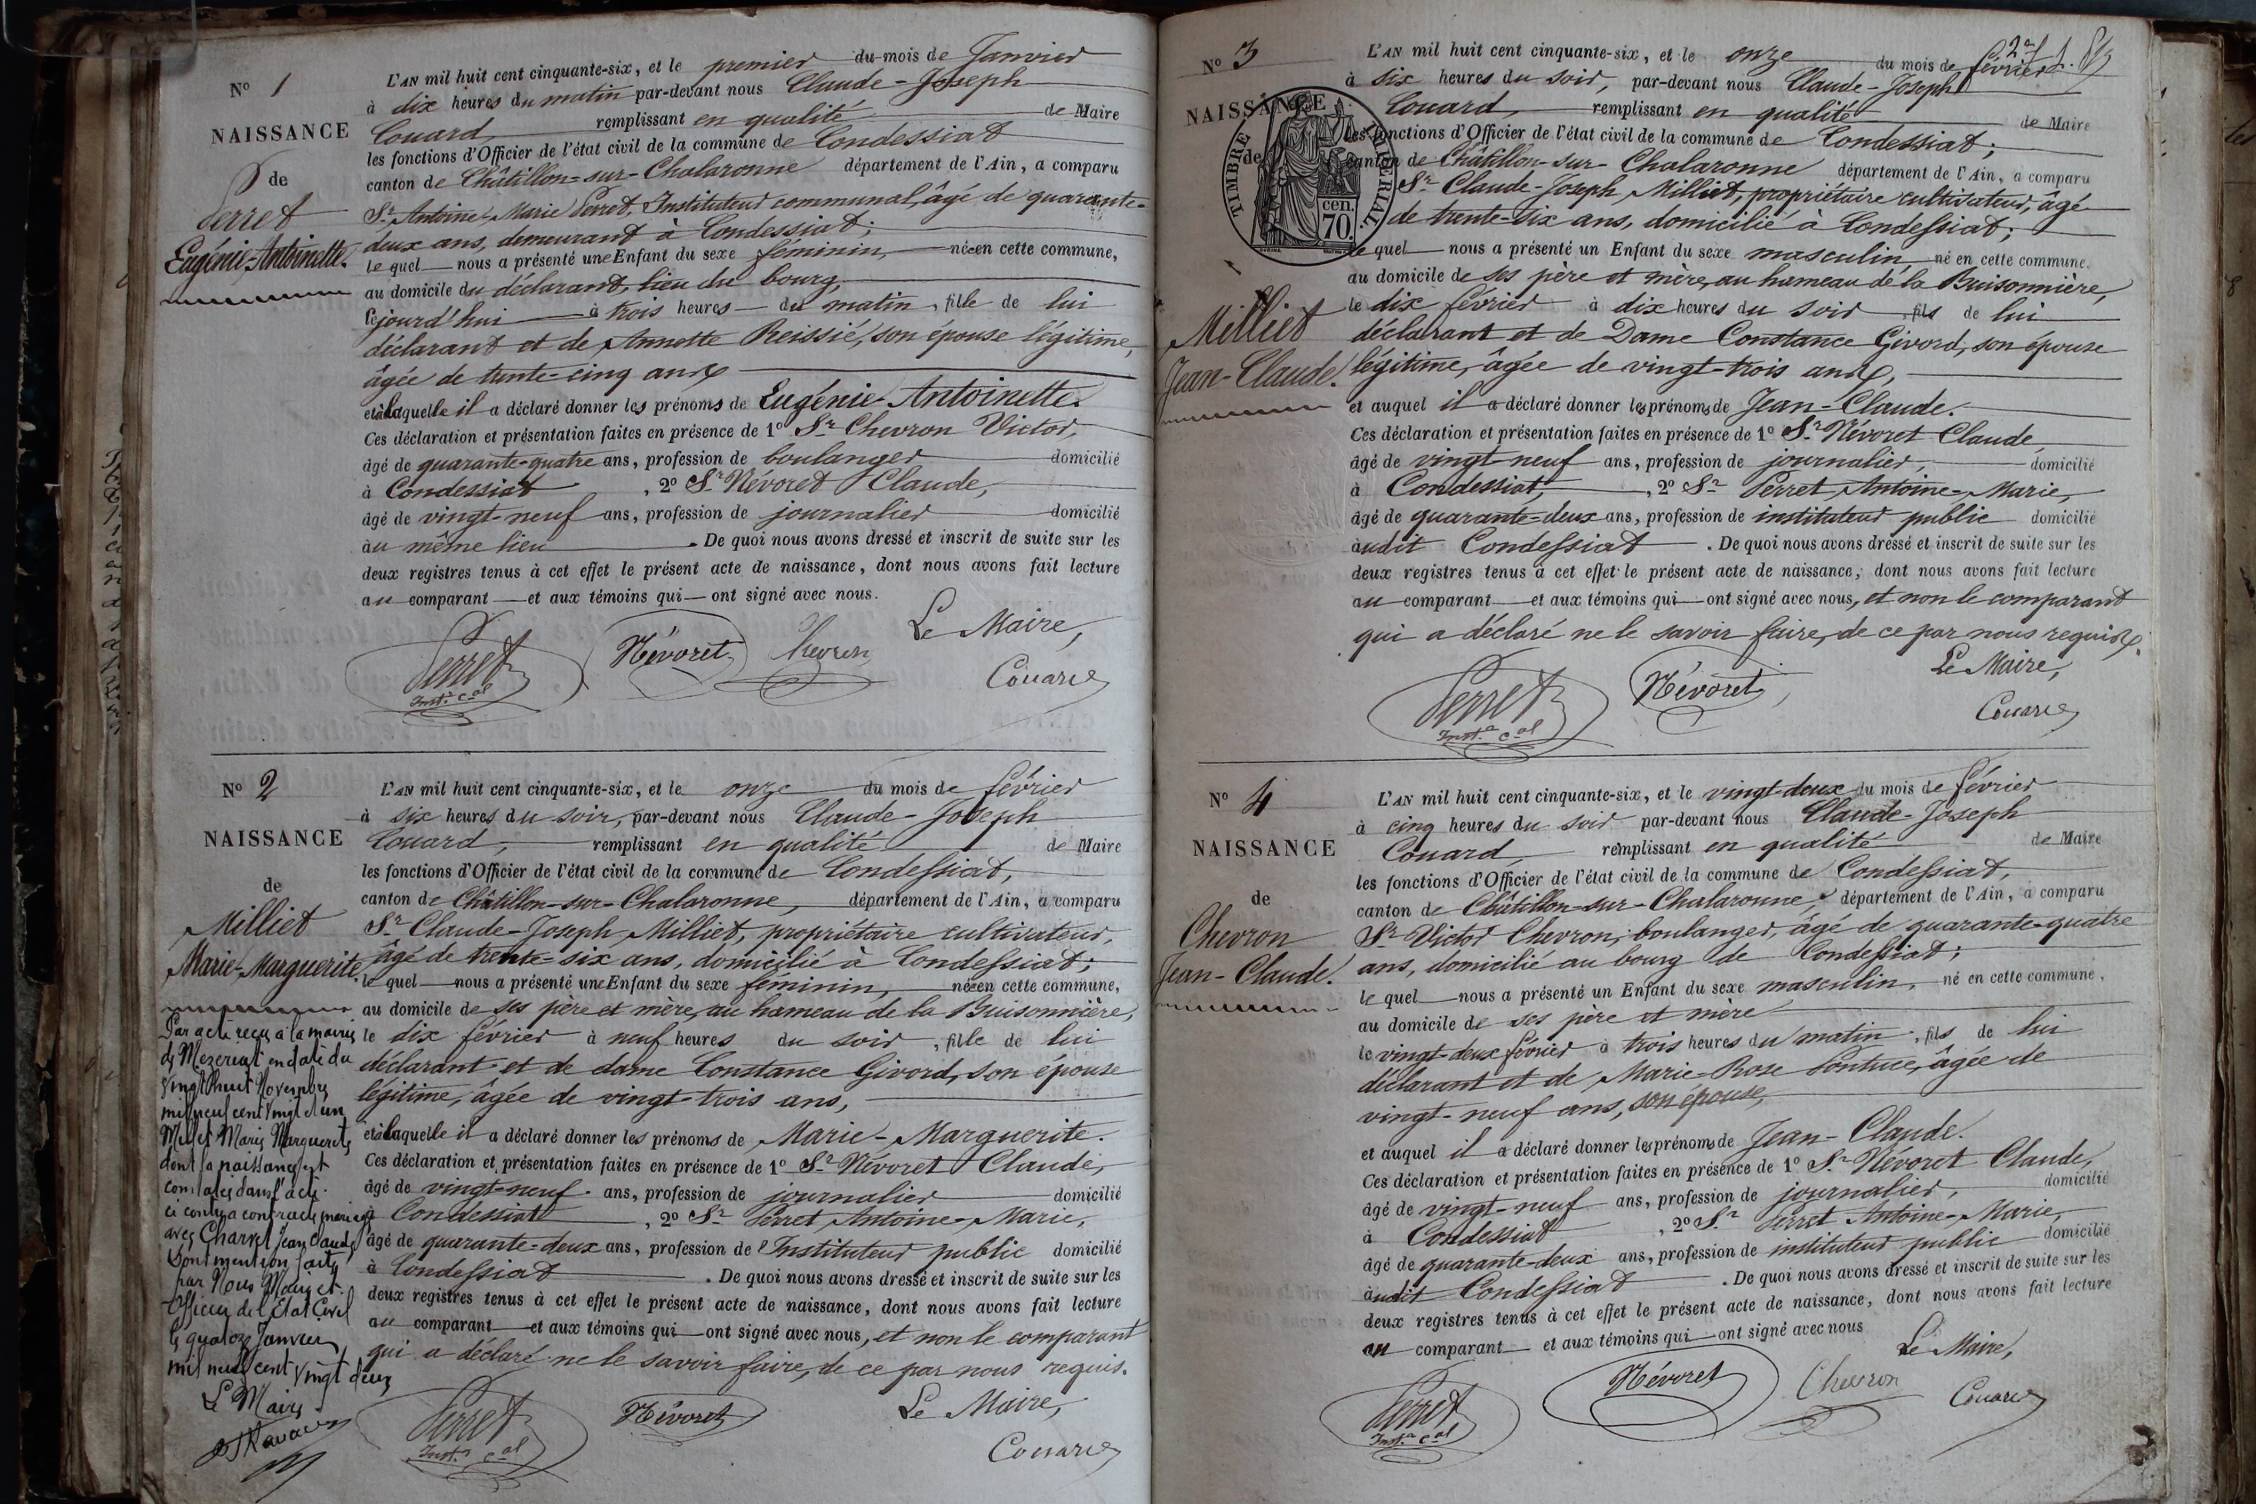 N° 1
NAISSANCE
de
Perret
Eugénie-Antoinette.
L'AN mil huit cent cinquante-six, et le premier du mois de Janvier
à dix heures du matin par-devant nous Claude-Joseph
Couard remplissant en qualité de Maire
les fonctions d'Officier de l'état civil de la commune de Condessiat
canton de Châtillon-sur-Chalaronne département de l'Ain, a comparu
Sr. Antoine-Marie Perret, Instituteur communal, âgé de quarante-
deux ans, demeurant à Condessiat;
lequel nous a présenté une Enfant du sexe féminin, née en cette commune,
au domicile du déclarant, lieu du bourg,
cejourd'hui à trois heures du matin, fille de lui
déclarant et de Annette Reissié, son épouse légitime,
âgée de trente-cinq ans
et à laquelle il a déclaré donner les prénoms de Eugénie-Antoinette.
Ces déclaration et présentation faites en présence de 1° Sr. Chevron Victor,
âgé de quarante-quatre ans, profession de boulanger domicilié
à Condessiat, 2° Sr. Névoret Claude,
âgé de vingt-neuf ans, profession de journalier domicilié
au même lieu. De quoi nous avons dressé et inscrit de suite sur les
deux registres tenus à cet effet le présent acte de naissance, dont nous avons fait lecture
au comparant et aux témoins qui ont signé avec nous.
Le Maire,
Perret Névoret Chevron
Inst. cal
Couard
N° 2
NAISSANCE
de
Milliet
Marie-Marguerite.
Par acte reçu à la mairie
de Mézériat en date du
vingt huit Novembre
mil neuf cent vingt et un
Milliet Marie Marguerite
dont la naissance est
constatée dans l'acte
ci contre a contracté mariage
avec Charvet Jean Claude
Dont mention faite
par Nous Maire et
Officier de l'Etat Civil
le quatorze Janvier
mil neuf cent vingt deux
Le Maire
L'AN mil huit cent cinquante-six, et le onze du mois de février
à six heures du soir, par-devant nous Claude-Joseph
Couard, remplissant en qualité de Maire
les fonctions d'Officier de l'état civil de la commune de Condessiat,
canton de Châtillon-sur-Chalaronne, département de l'Ain, a comparu
Sr. Claude-Joseph Milliet, propriétaire cultivateur,
âgé de trente-six ans, domicilié à Condessiat;
lequel nous a présenté une Enfant du sexe féminin, née en cette commune,
au domicile de ses père et mère, au hameau de la Buisonnière,
le dix février à neuf heures du soir, fille de lui
déclarant et de dame Constance Givord, son épouse
légitime, âgée de vingt-trois ans,
et à laquelle il a déclaré donner les prénoms de Marie-Marguerite.
Ces déclaration et présentation faites en présence de 1° Sr. Névoret Claude,
âgé de vingt-neuf ans, profession de journalier domicilié
à Condessiat, 2° Sr. Perret Antoine-Marie,
âgé de quarante-deux ans, profession de Instituteur public domicilié
à Condessiat. De quoi nous avons dressé et inscrit de suite sur les
deux registres tenus à cet effet le présent acte de naissance, dont nous avons fait lecture
au comparant et aux témoins qui ont signé avec nous, et non le comparant
qui a déclaré ne le savoir faire, de ce par nous requis.
Le Maire,
Perret Névoret
Inst. cal
Couard
N° 3
NAISSANCE
de
Milliet
Jean-Claude.
TIMBRE IMPÉRIAL.
70 cen.
L'AN mil huit cent cinquante-six, et le onze du mois de février
à six heures du soir, par-devant nous Claude-Joseph
Couard, remplissant en qualité de Maire
les fonctions d'Officier de l'état civil de la commune de Condessiat;
canton de Châtillon-sur-Chalaronne département de l'Ain, a comparu
Sr. Claude-Joseph Milliet, propriétaire cultivateur, âgé
de trente-six ans, domicilié à Condessiat;
lequel nous a présenté un Enfant du sexe masculin né en cette commune.
au domicile de ses père et mère, au hameau de la Buisonnière,
le dix février à dix heures du soir fils de lui
déclarant et de Dame Constance Givord, son épouse
légitime, âgée de vingt-trois ans,
et auquel il a déclaré donner les prénoms de Jean-Claude.
Ces déclaration et présentation faites en présence de 1° Sr. Névoret Claude,
âgé de vingt-neuf ans, profession de journalier, domicilié
à Condessiat, 2° Sr. Perret Antoine-Marie,
âgé de quarante-deux ans, profession de instituteur public domicilié
audit Condessiat. De quoi nous avons dressé et inscrit de suite sur les
deux registres tenus à cet effet le présent acte de naissance, dont nous avons fait lecture
au comparant et aux témoins qui ont signé avec nous, et non le comparant
qui a déclaré ne le savoir faire, de ce par nous requis.
Le Maire,
Perret Névoret
Inst. cal
Couard
N° 4
NAISSANCE
de
Chevron
Jean-Claude.
L'AN mil huit cent cinquante-six, et le vingt-deux du mois de février
à cinq heures du soir par-devant nous Claude-Joseph
Couard, remplissant en qualité de Maire
les fonctions d'Officier de l'état civil de la commune de Condessiat,
canton de Châtillon-sur-Chalaronne, département de l'Ain, a comparu
Sr. Victor Chevron, boulanger, âgé de quarante-quatre
ans, domicilié au bourg de Condessiat;
lequel nous a présenté un Enfant du sexe masculin, né en cette commune,
au domicile de ses père et mère
le vingt-deux février à trois heures du matin, fils de lui
déclarant et de Marie-Rose âgée de
vingt-neuf ans, son épouse,
et auquel il a déclaré donner les prénoms de Jean-Claude.
Ces déclaration et présentation faites en présence de 1° Sr. Névoret Claude,
âgé de vingt-neuf ans, profession de journalier, domicilié
à Condessiat, 2° Sr. Perret Antoine-Marie,
âgé de quarante-deux ans, profession de instituteur public domicilié
audit Condessiat. De quoi nous avons dressé et inscrit de suite sur les
deux registres tenus à cet effet le présent acte de naissance, dont nous avons fait lecture
au comparant et aux témoins qui ont signé avec nous
Le Maire,
Perret Névoret Chevron
Inst. cal
Couard